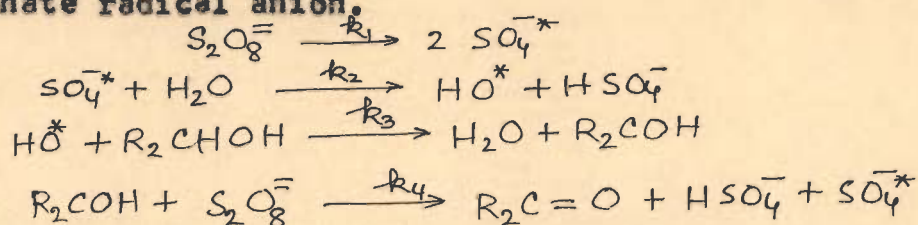 nate radical anion.
S₂O₈⁼ —k₁→ 2 SO₄⁻*
SO₄⁻* + H₂O —k₂→ HO* + HSO₄⁻
HO* + R₂CHOH —k₃→ H₂O + R₂COH
R₂COH + S₂O₈⁼ —k₄→ R₂C=O + HSO₄⁻ + SO₄⁻*